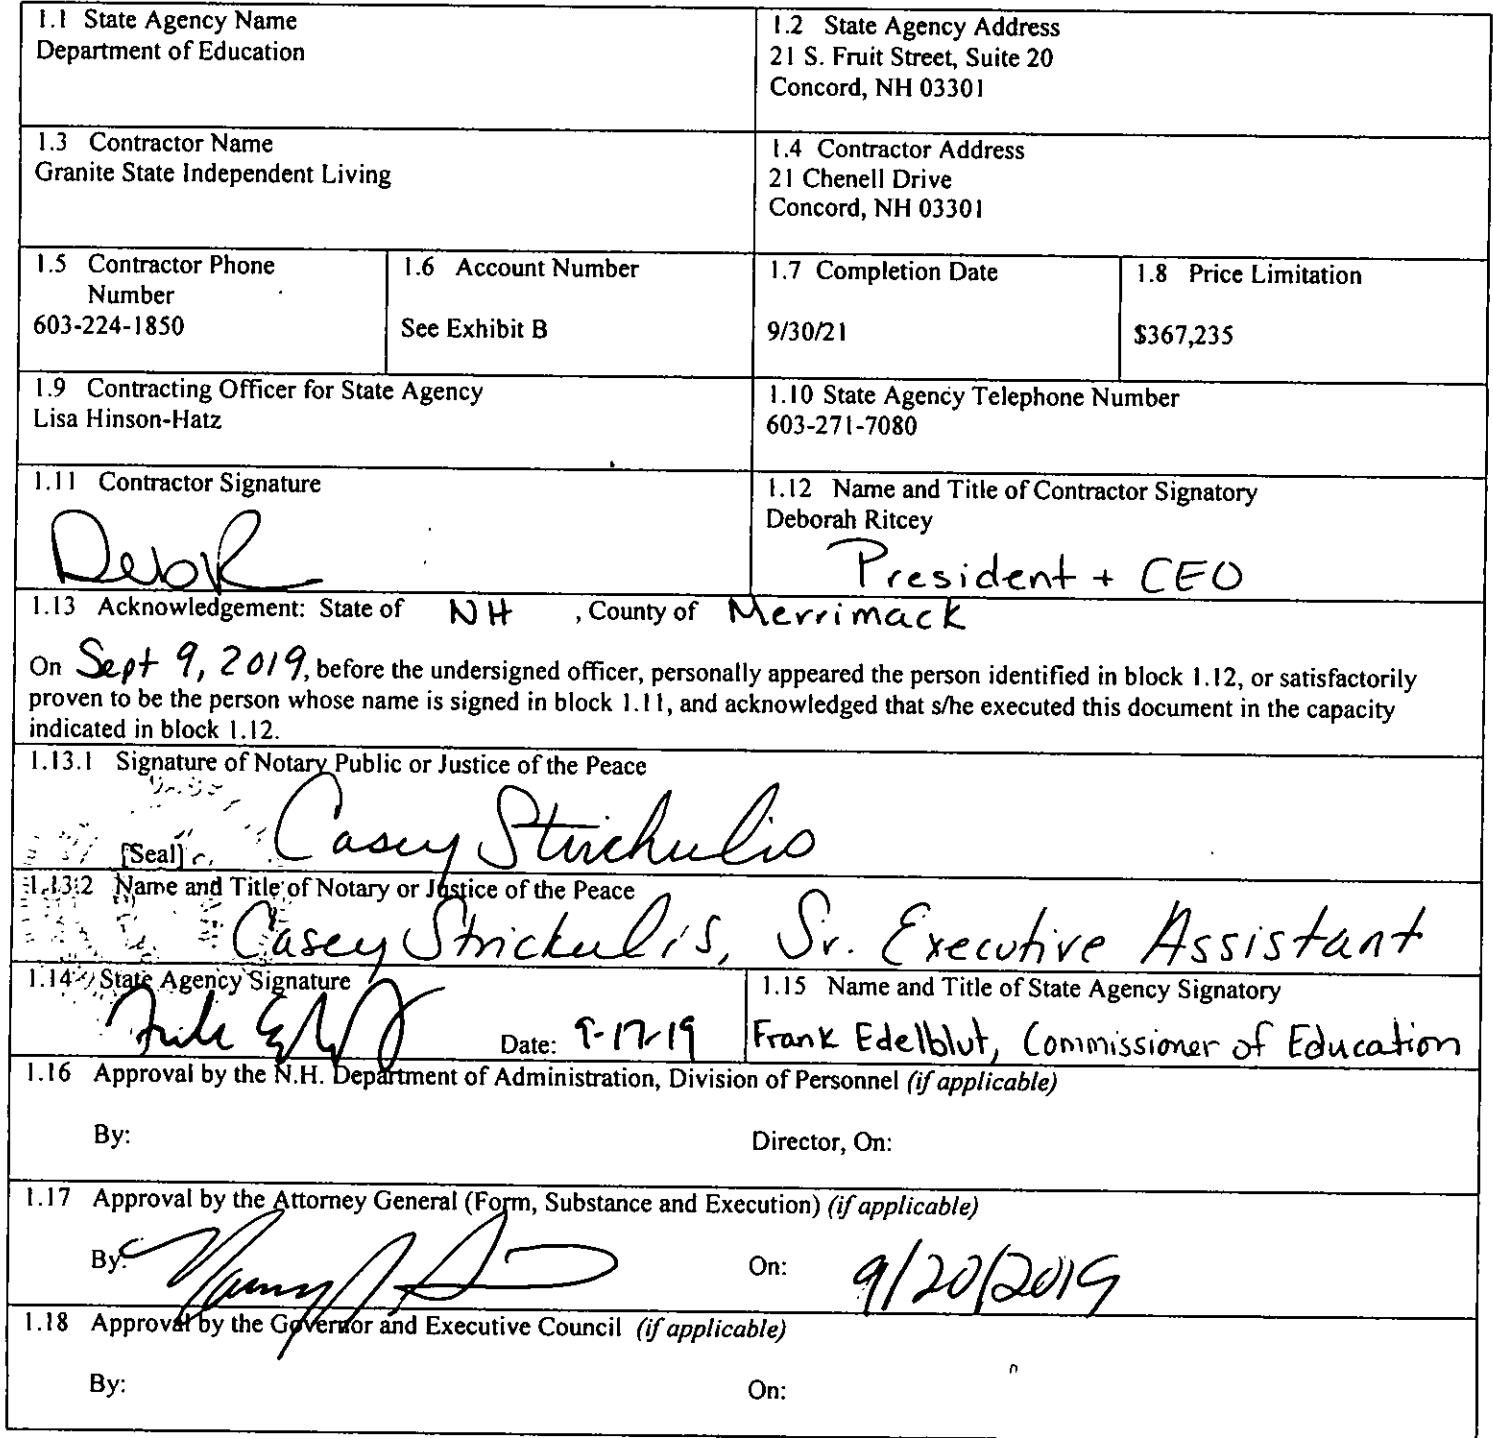 1.1 State Agency Name
Department of Education
1.2 State Agency Address
21 S. Fruit Street, Suite 20
Concord, NH 03301
1.3 Contractor Name
Granite State Independent Living
1.4 Contractor Address
21 Chenell Drive
Concord, NH 03301
1.5 Contractor Phone
Number
603-224-1850
1.6 Account Number
See Exhibit B
1.7 Completion Date
9/30/21
1.8 Price Limitation
$367,235
1.9 Contracting Officer for State Agency
Lisa Hinson-Hatz
1.10 State Agency Telephone Number
603-271-7080
1.11 Contractor Signature
1.12 Name and Title of Contractor Signatory
Deborah Ritcey
President + CEO
1.13 Acknowledgement: State of NH , County of Merrimack
On Sept 9, 2019, before the undersigned officer, personally appeared the person identified in block 1.12, or satisfactorily
proven to be the person whose name is signed in block 1.11, and acknowledged that s/he executed this document in the capacity
indicated in block 1.12.
1.13.1 Signature of Notary Public or Justice of the Peace
[Seal] Casey Strickulis
1.13.2 Name and Title of Notary or Justice of the Peace
Casey Strickulis, Sr. Executive Assistant
1.14 State Agency Signature
Date: 9-17-19
1.15 Name and Title of State Agency Signatory
Frank Edelblut, Commissioner of Education
1.16 Approval by the N.H. Department of Administration, Division of Personnel (if applicable)
By: Director, On:
1.17 Approval by the Attorney General (Form, Substance and Execution) (if applicable)
By: On: 9/20/2019
1.18 Approval by the Governor and Executive Council (if applicable)
By: On: